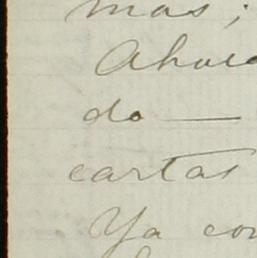 mas;
Ahora
do —
cartas
Ya con